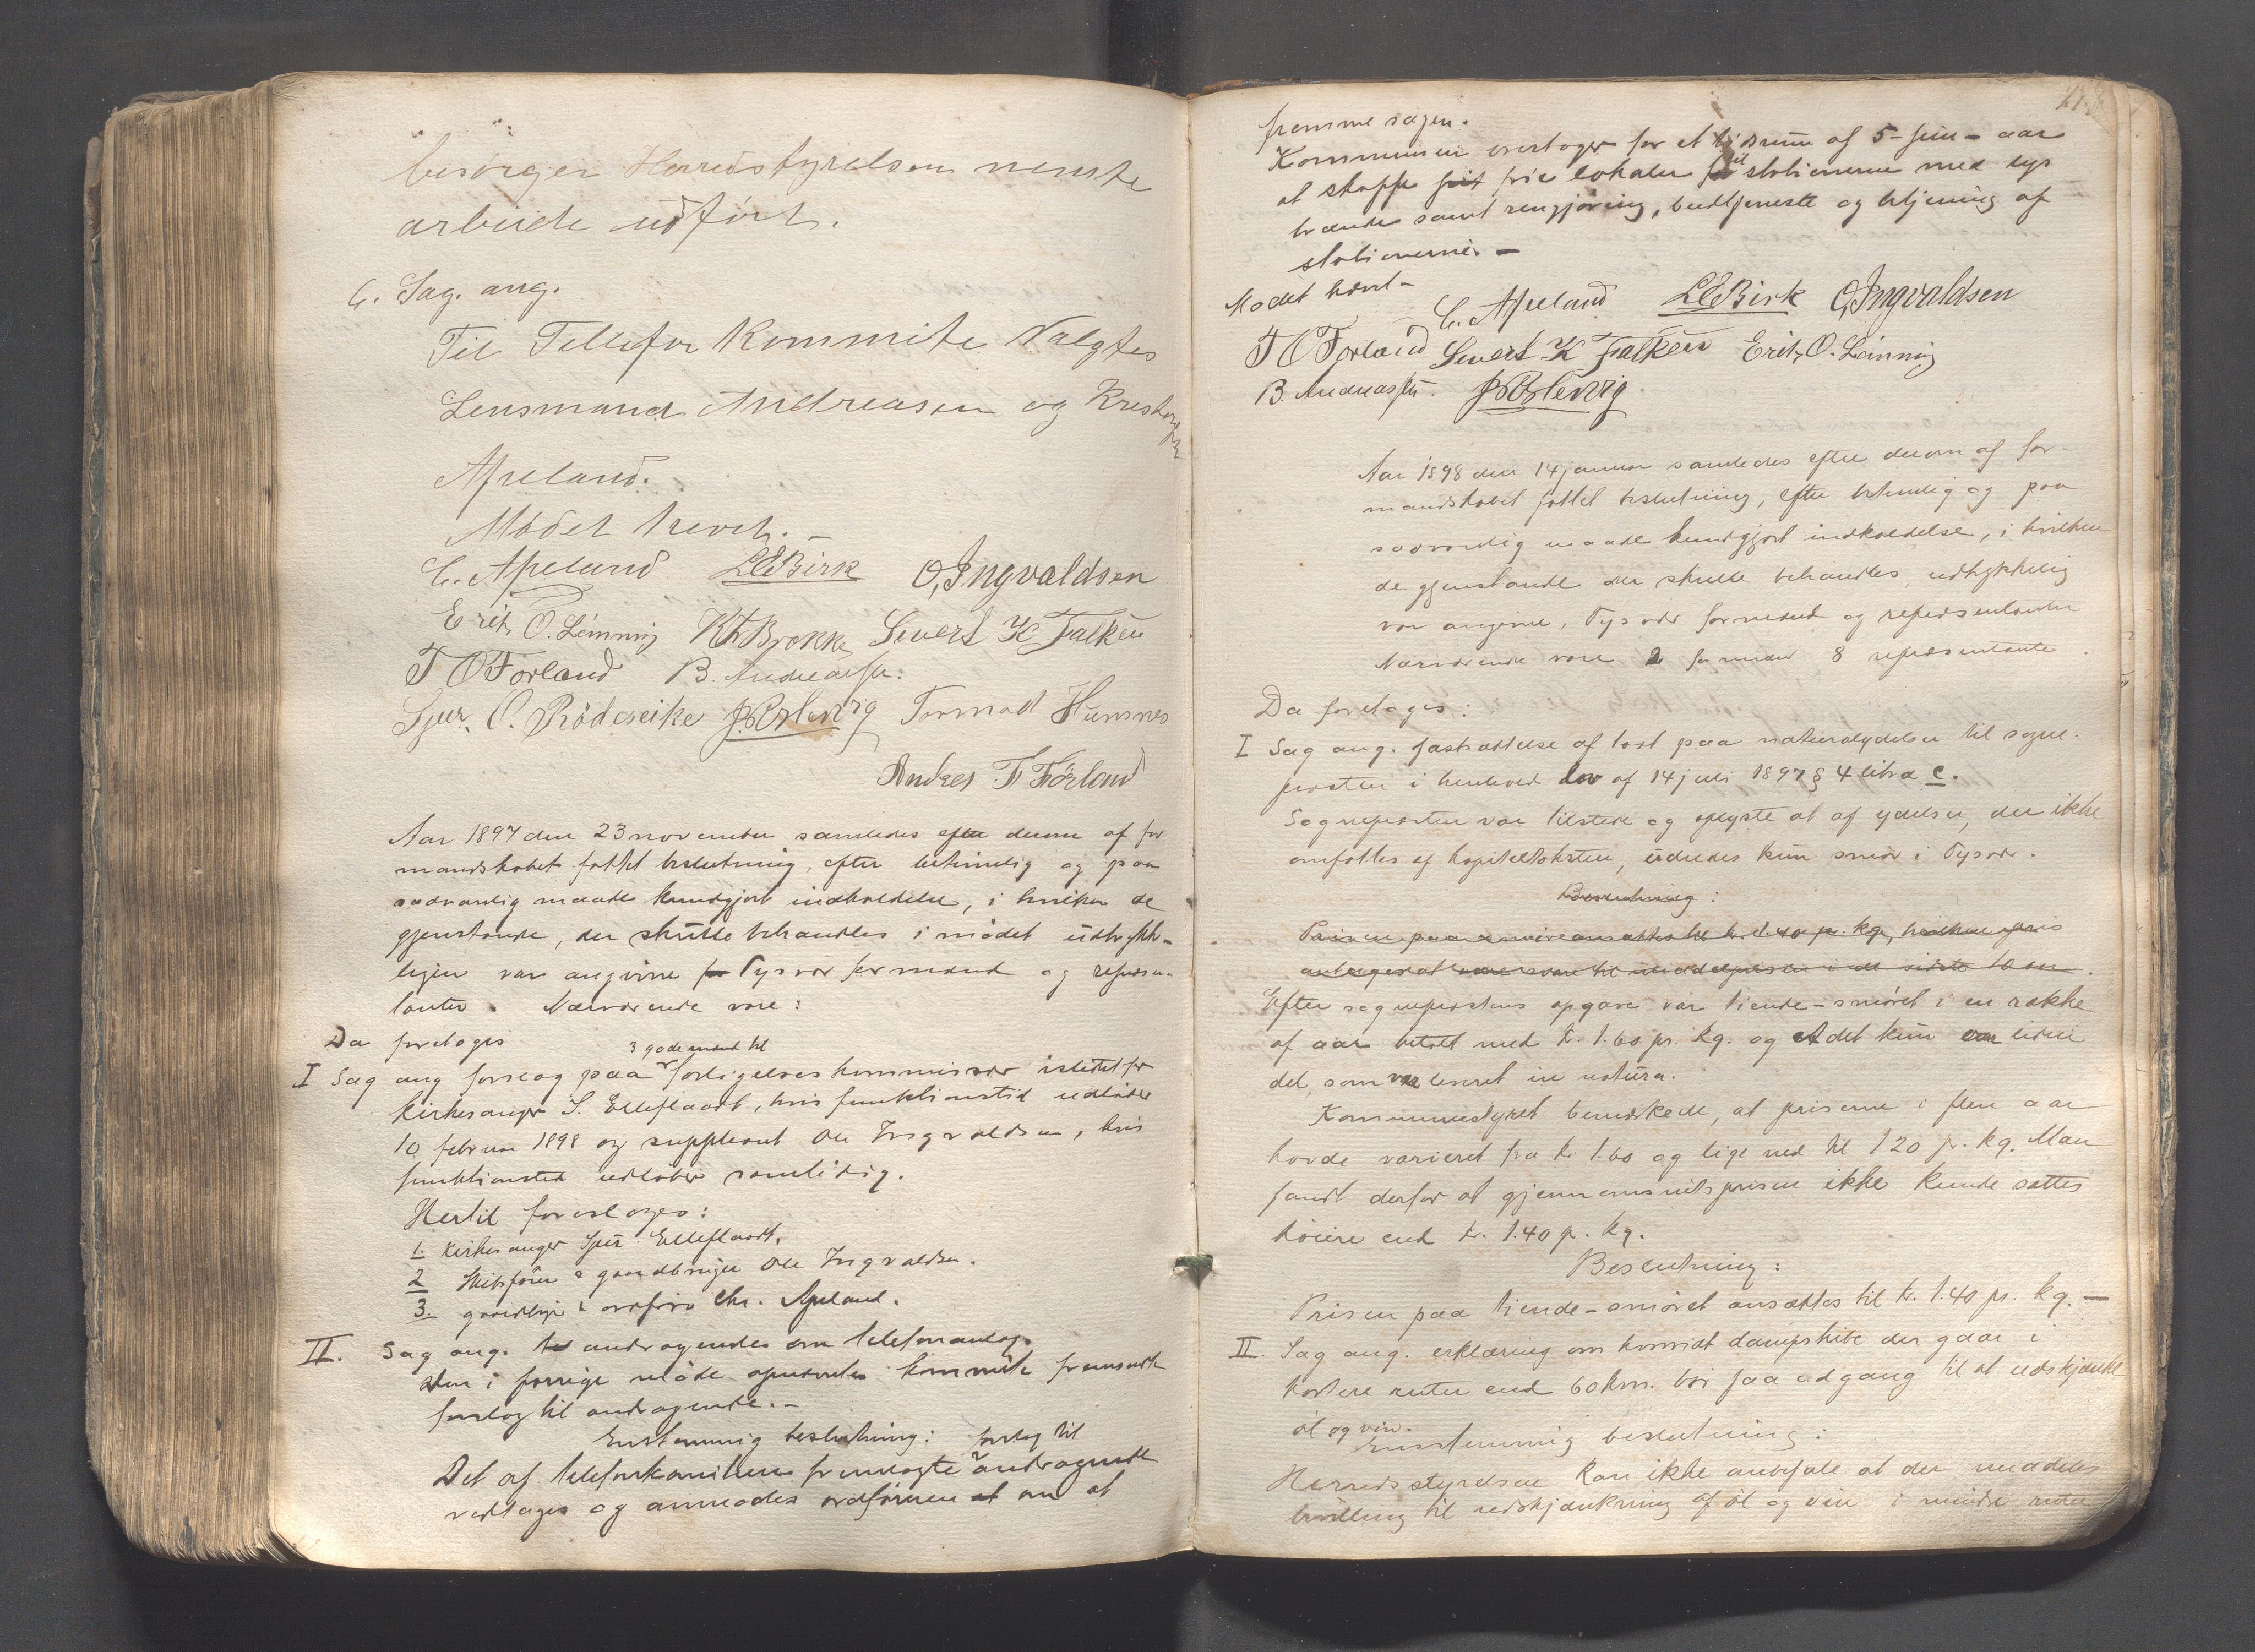 besørger Herredstyrelsen nemnte
arbeide udført.
6. Sag. ang.
Til Tellefon Kommite Valgtes
Lensmand Andreasen og Kristoffer
Apeland.
Mødet hevet. –
C. Apeland LEBirk O, Ingvaldsen
Erik O. Lønning Sivert K Falkeid
T O Førland B. Andreassen.
Sjur. O. Rødeseike Tormod Hunsnes
Andres T Førland
Aar 1897 den 23 november samledes efter derom af for
mandskabet fattet beslutning, efter betimelig og paa
sædvanlig maade kundgjort indkaldelse, i hvilken de
gjenstande, der skulle behandles i mødet udtrykke-
ligen var angivne for Tysvær formænd og repræsen-
tanter. Nærværende vare:
Da foretoges
3 gode mænd til
I Sag ang forslag paa forligelseskommissær istedet for
kirkesanger S. Ellefladt, hvis funktionstid udløber
10 februar 1898 og suppleant Ole Ingvaldsen, hvis
funktionstid udløber samtidig.
Hertil foresloges:
1. Kirkesanger Sjur Ellefladt.
2 Skibsfører & gaardbruger Ole Ingvaldsen.
3. gaardbr. & ordfører Chr. Apeland.
II. Sag ang. andragendes om telefonanlæg.
Den i forrige møde opnævnte kommite fremsendte
forslag til andragende. –
Enstemmig beslutning: forslag til
Det af telefonkomiteen fremlagte andragende
vedtages og anmodes ordføreren at om at
fremme sagen.
Kommunen overtager for et tidsrum af 5 – fem – aar
at skaffe frit frie lokaler for til stationerne med lys
brænde samt rengjøring, budtjeneste og betjening af
stationerne. –
Mødet hævet –
C. Apeland LEBirk O, Ingvaldsen
T O Førland Sivert K Falkeid Erik O. Lønning
B. Andreassen.
Aar 1898 den 14 januar samledes efter derom af for-
mandskabet fattet beslutning, efter betimelig og paa
sædvanlig maade kundgjort indkaldelse, i hvilken
de gjenstande der skulle behandles udtrykkelig
var angivne, Tysvær formænd og repræsentanter
Nærværende vare 2 formænd 8 repræsentanter.
Da foretoges:
I Sag ang. fastsættelse af taxt paa naturalydelser til sogne-
præsten i henhold lov af 14 juli 1897 § 4 litra c.
Sognepræsten var tilstede og oplyste at af ydelser, der ikke
omfattes af kapitelstaksten, udredes kun smør i Tysvær.
Beslutning:
Prisen paa smør ansættes til kr. 1.40 pr. kg, hvilken pris
antages at være svare til middelprisen i de sidste 10 aar.
Efter sognepræstens opgave var tiende-smøret i en række
af aar betalt med kr. 1.60 pr. kg. og at det kun var liden
del, som var leveret in natura.
Kommunestyret bemærkede, at priserne i flere aar
havde varieret fra kr 1.60 og lige ned til 1.20 pr. kg. Man
fandt derfor at gjennemsnitsprisen ikke kunde sættes
høiere end kr. 1.40 p. kg.
Beslutning:
Prisen paa tiende-smøret ansættes til kr. 1.40 pr. kg. –
II. Sag ang. erklæring om hvorvidt dampskibe der gaar i
kortere ruter end 60 km. bør faa adgang til at udskjænke
øl og vin.
Enstemmig beslutning:
Herredsstyrelsen kan ikke anbefale at der meddeles
bevilling til udskjænkning af øl og vin i mindre ruter